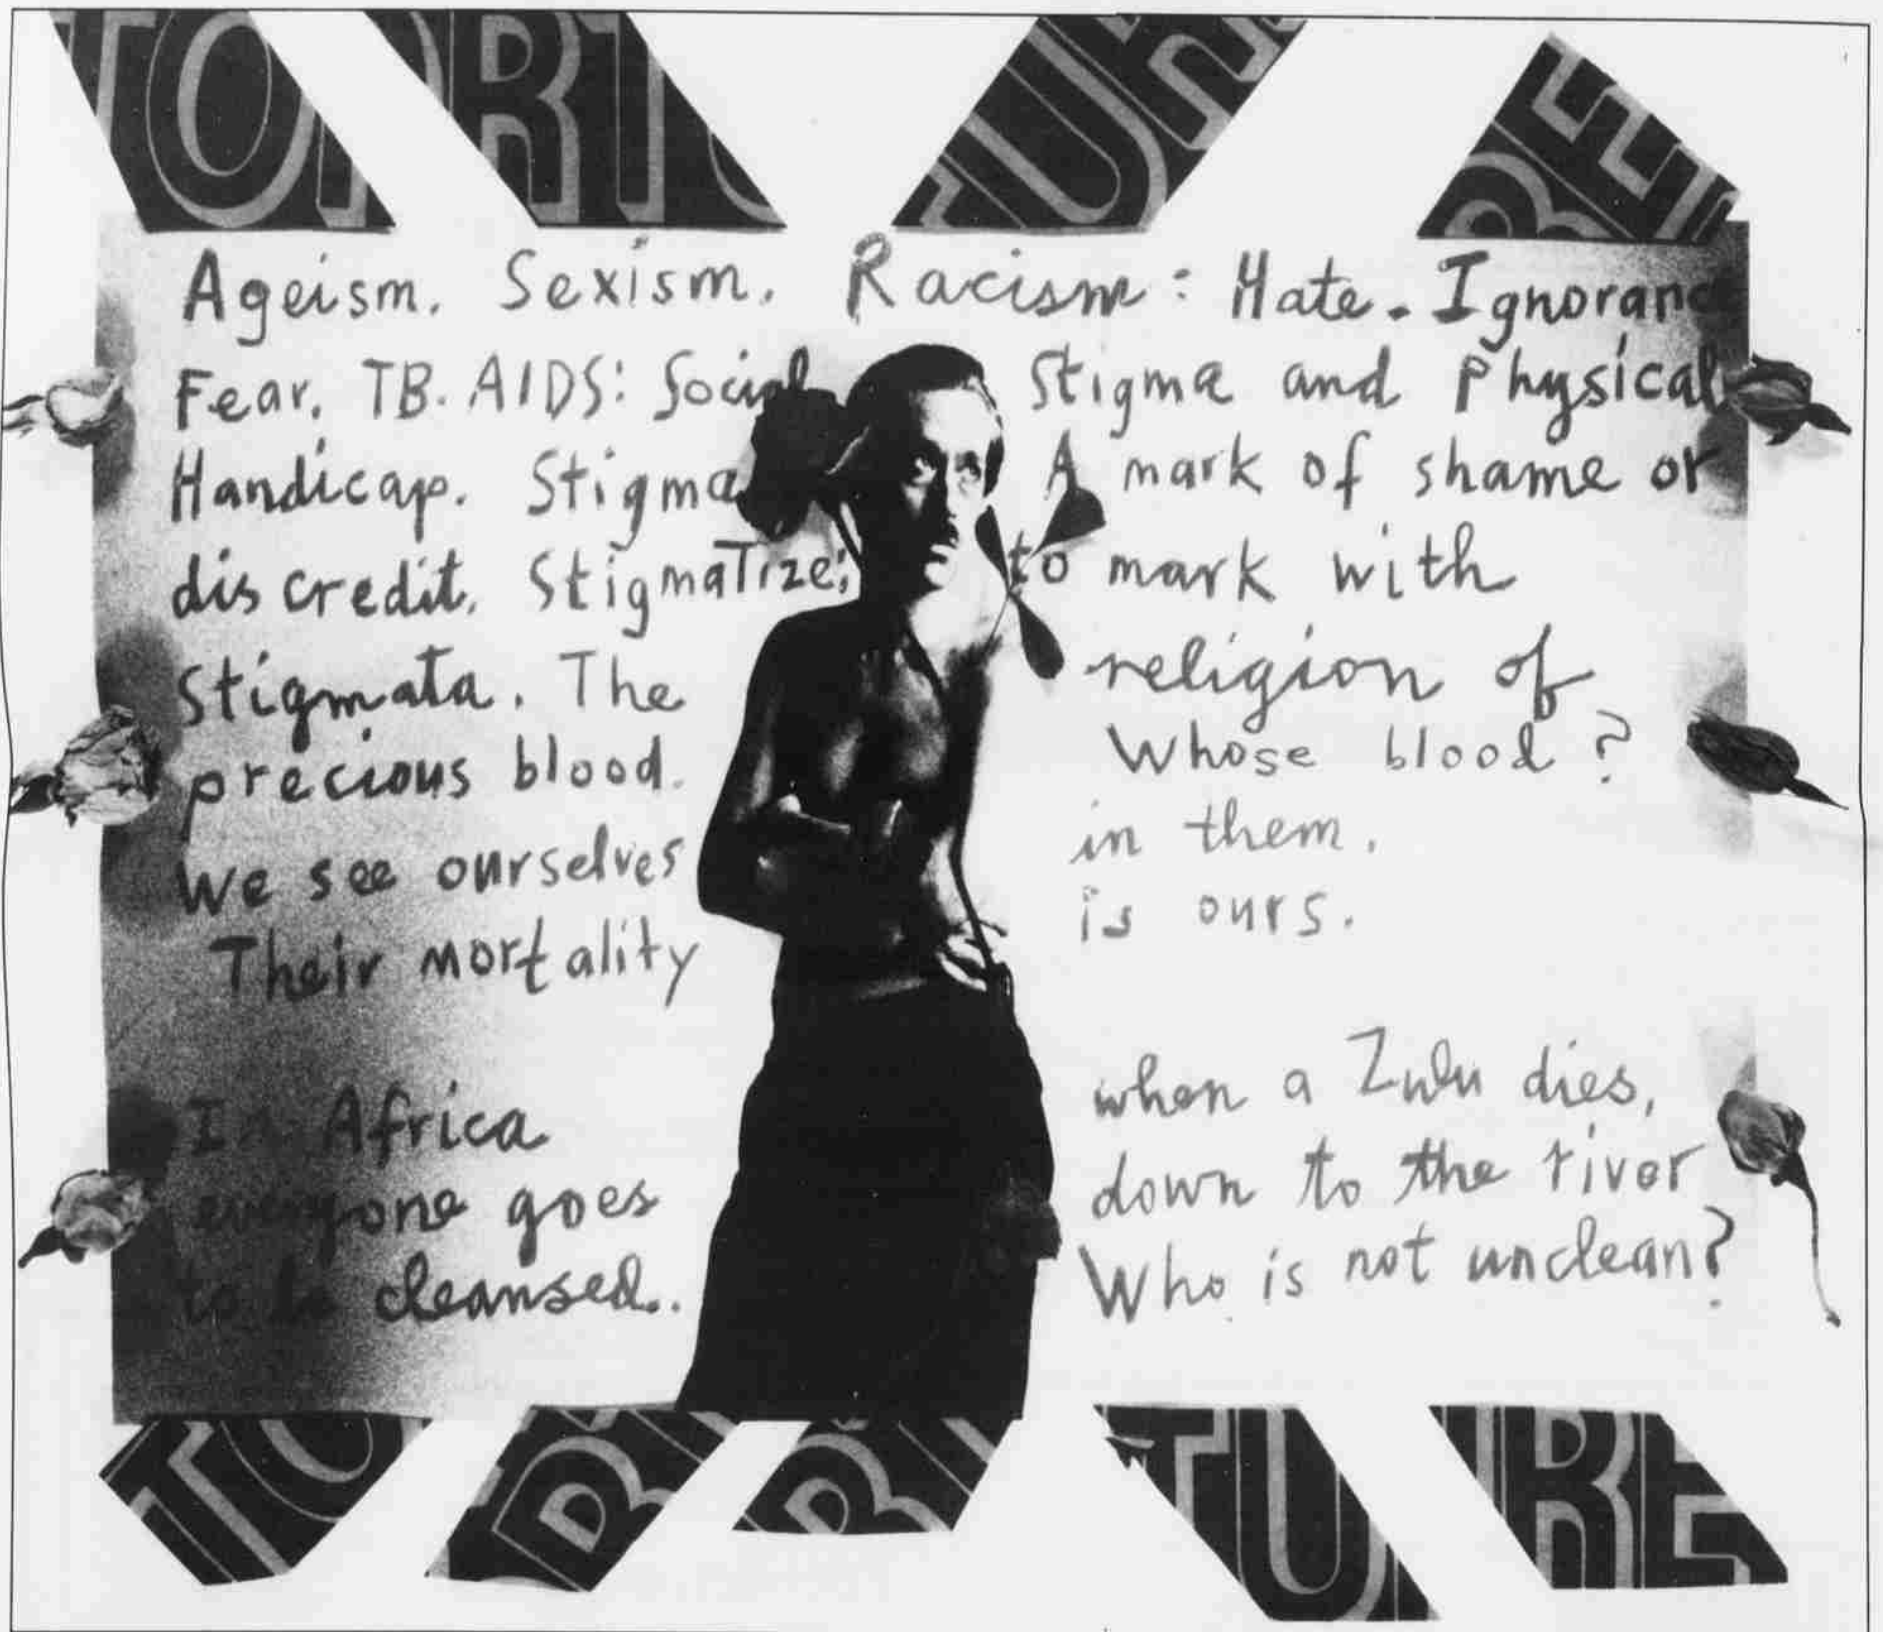 TORTURE
Ageism. Sexism. Racism: Hate. Ignoranc
Fear. TB. AIDS: Social Stigma and Physical
Handicap. Stigma A mark of shame or
discredit. Stigmatize: to mark with
Stigmata. The religion of
precious blood. Whose blood?
We see ourselves in them.
Their mortality is ours.
In Africa when a Zulu dies,
everyone goes down to the river
to be cleansed. Who is not unclean?
TO R R TURE